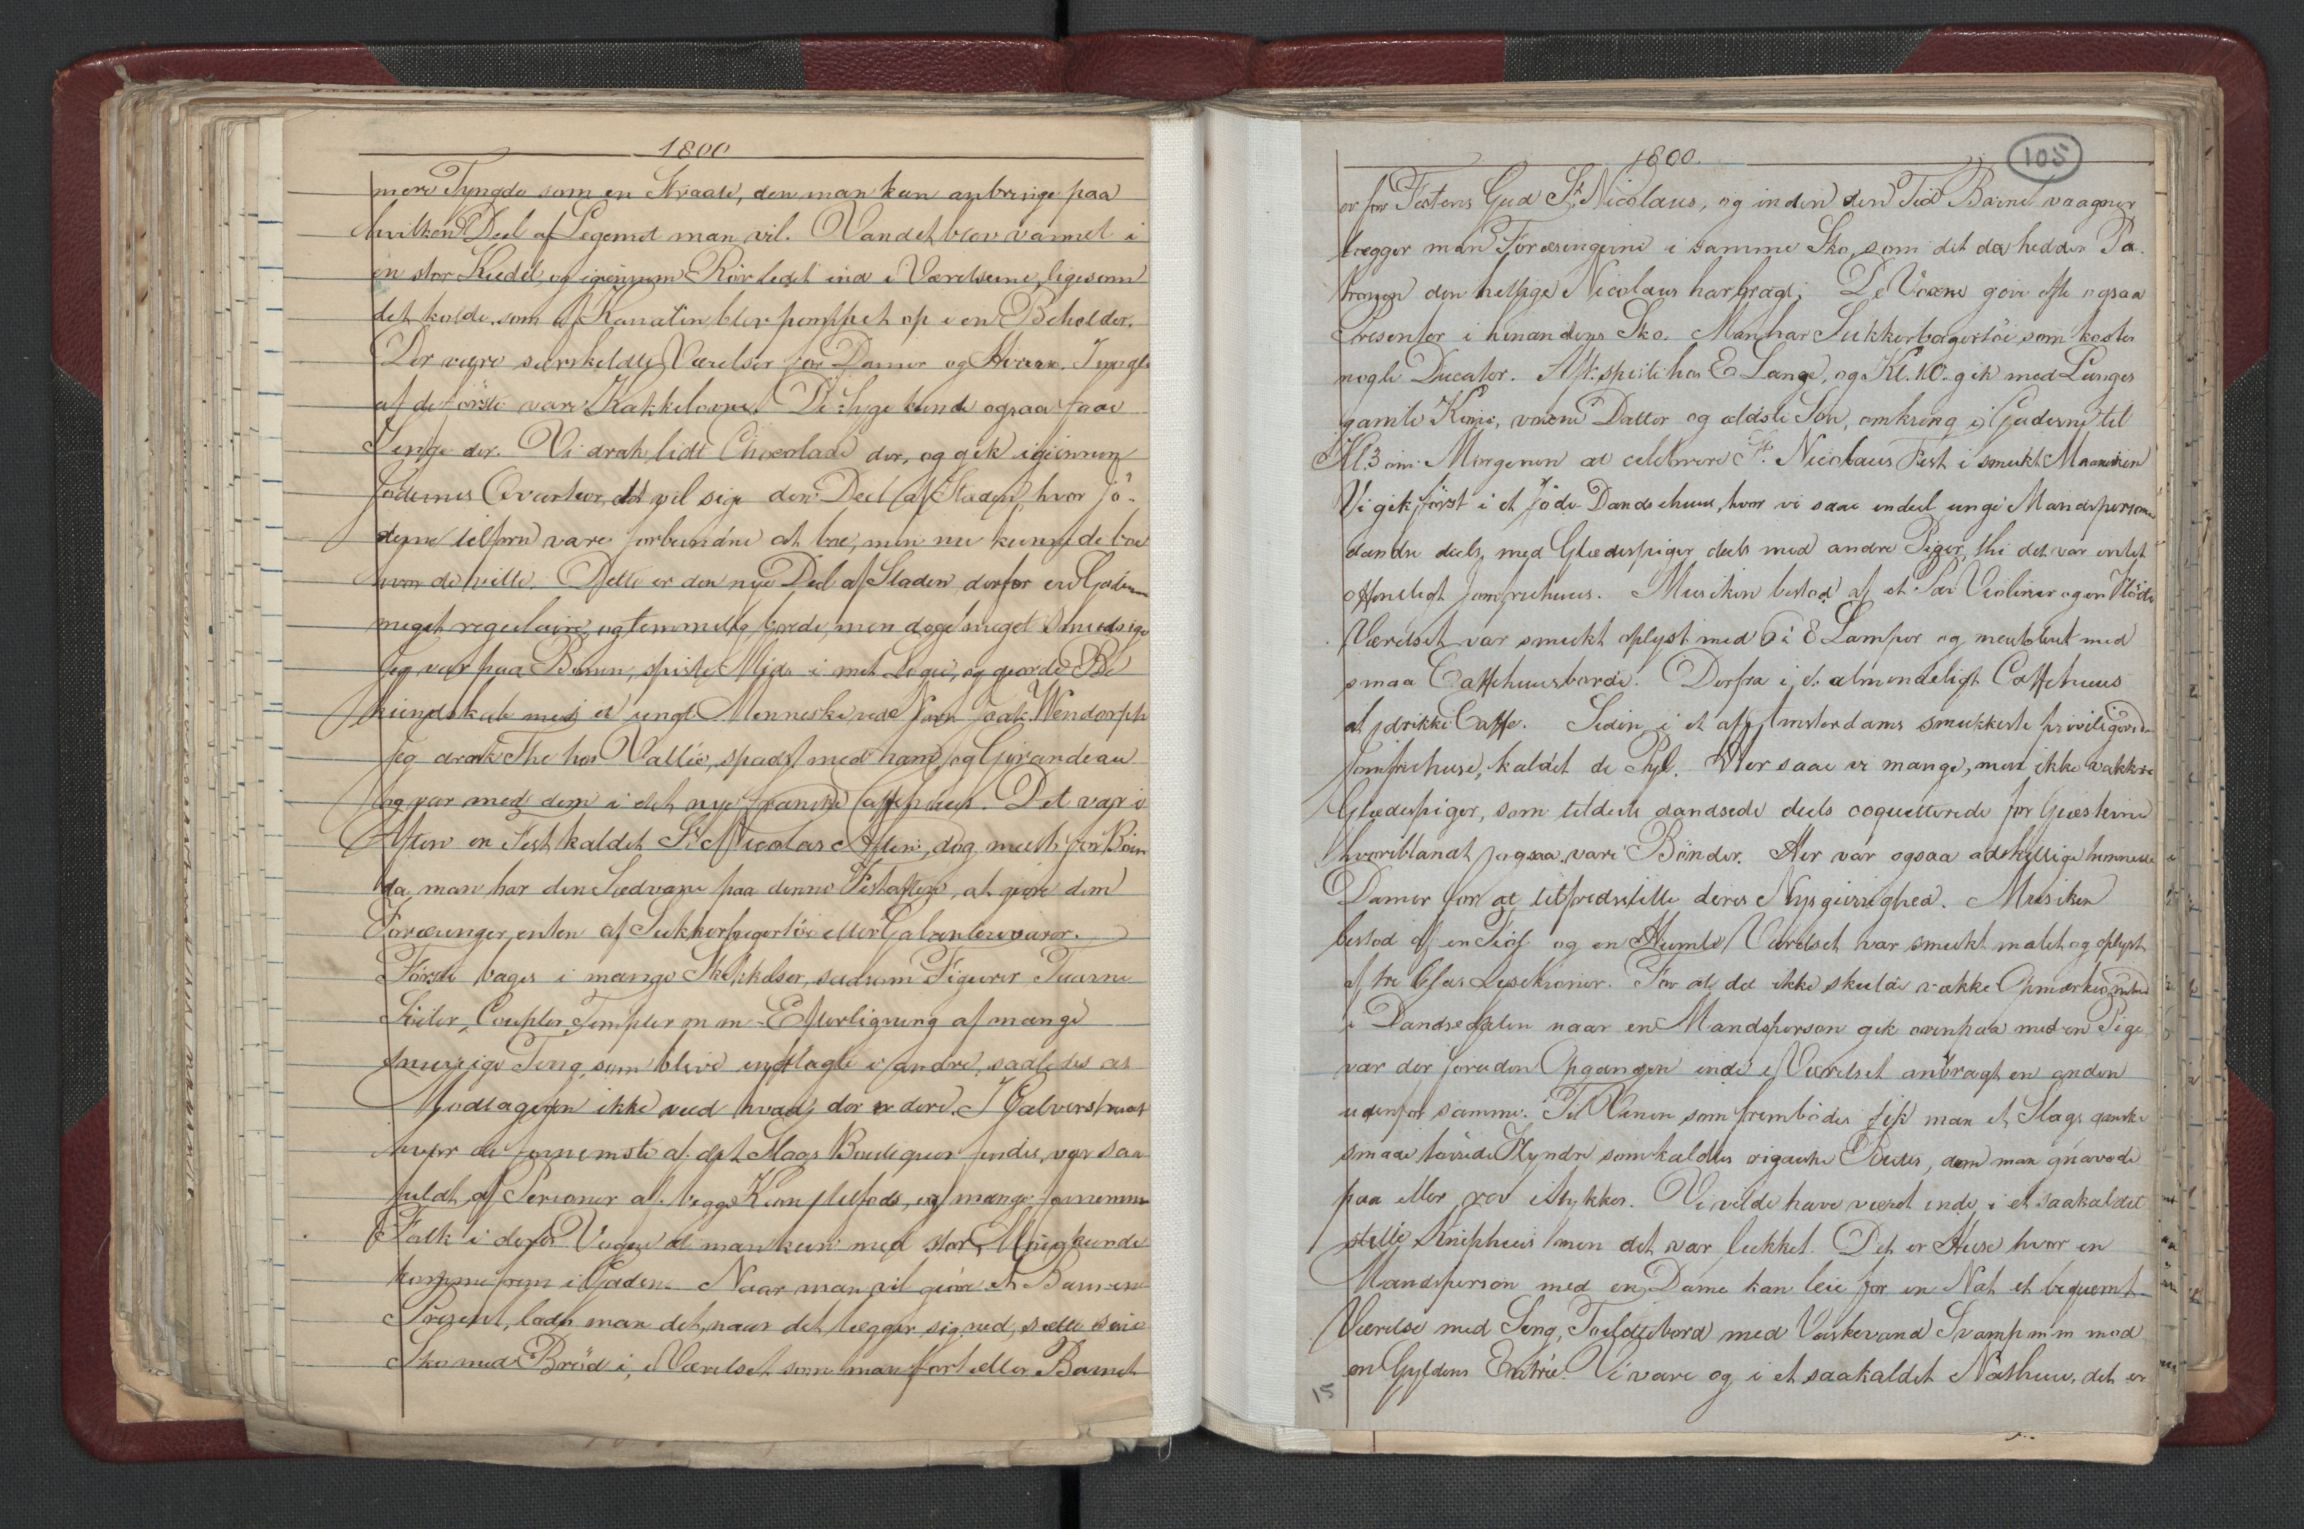 1800
mere Tyngde som en Straale, den man kan anbringe paa
hvilken Deel af Legemet man vil. Vandet blev varmet i
en stor Kiedel, og igiennem Rör ledet ind i Værelserne, ligesom
det kolde, som af Kanalen blev pompet op i en Beholder.
Der vare særskeldte Værelser for Damer og Herrer. I nogle
af de förste vare Kakkelovne. De Syge kunde ogsaa faae
Senge der. Vi drak lidt Chocolade der, og gik igiennem
Jödernes Qvarteer, det vil sige den Deel af Staden, hvor Jö-
derne tilforn vare forbundne at boe, men nu kunne de boe
hvor de ville. Dette er den nye Deel af Staden, derfor ere Gaderne
meget regulaire, og temmelig brede, men dog meget smudsige
Jeg var paa Börsen, spiste Midd. i mit Logie, og giorde Be
kiendskab med et ungt Menneske ved Navn Wendorph
Jeg drak The hos Vallée, spads. med ham og Girandeau
og var med dem i det nye franske Caffehuus. Det var i
Aften en Fest kaldet St. Nicolas Aften, dog meest for Börn
da man har den Sædvane paa denne Festaften, at giöre dem
Foræringer enten af Sukkerbagertöi eller Galanterivarer.
Förste bages i mange Skikkelser, saasom Figurer Taarne
Slotter, Templer m m Efterligning af mange
snurrige Ting, som blive indlagte i andre, saaledes at
Modtageren ikke veed hvad der er deri. I Calverstraat
hvor de fornemste af det Slags Boutiquer findes, var saa
fuldt af Personer af begge Kiön tilfods, og mange fornemme
Folk i deres Vogne at man kun med stor Möie kunde
komme frem i Gaden. Naar man vil giöre et Barn en
Present, lader man det, naar det lægger sig ned, sætte sine
Sko med Bröd i, i Værelset som man fortæller Barnet
1800.
105
er for Festens Gud St. Nicolaus, og inden den Tid Barnet vaagner
lægger man Foræringerne i samme Sko, som det da hedder Pa-
tronen den hellige Nicolaus har bragt. De Voxne give ofte ogsaa
Presenter i hinandens Sko. Man har Sukkerbagertöi som koster
nogle Ducater. Aft: spiste hos E Lange, og Kl. 10. gik med Langes
gamle Kone, voxne Datter og ældste Sön, omkring i Gaderne til
Kl. 3 om Morgenen at celebrere St. Nicolaus Fest i smukt Maaneskin
Vi gik först i et Jöde Dandsehuus, hvor vi saae endeel unge Mandspersoner
dandse deels med Glædespiger, deels med andre Piger, thi det var intet
offentligt Jomfruehuus. Musiken bestod af et Par Violiner og en Flöite
Værelset var smukt oplyst med 6 i 8 Lamper og meubleret med
smaa Caffehuusborde. Derfra i et almindeligt Caffehuus
at drikke Caffe. Siden i et af Amsterdams smukkeste priviligerede
Jomfruehuse, kaldet de Pyl. Her saae vi mange, men ikke vakkre
Glædespiger, som tildeels dandsede deels coquetterede for Giæsterne
hvoriblandt ogsaa vare Bönder. Her var ogsaa adskillige
Damer for at tilfredsstille deres Nysgierrighed. Musiken
bestod af en og en Værelset var smukt malet og oplyst
af tre Glas Lysekroner. For at det ikke skulde vække Opmærksomhed
i Dandsesalen naar en Mandsperson gik ovenpaa med en Pige
var der foruden Opgangen inde i Værelset anbragt en anden
udenfor samme. Til Vinen som frembödes fik man et Slags ganske
smaae törrede som kaldtes dem man gnavede
paa eller rev i Stykker. Vi vilde have været inde i et saakaldet
stille Kniphuus men det var lukket. Det er Huse hvor en
Mandsperson med en Dame kan leie for en Nat et beqvemt
Værelse med Seng, Toeiletbord med Vaskevand Svamp m m mod
en Gyldens Entrée. Vi vare og i et saakaldet Nathuus, det er
15